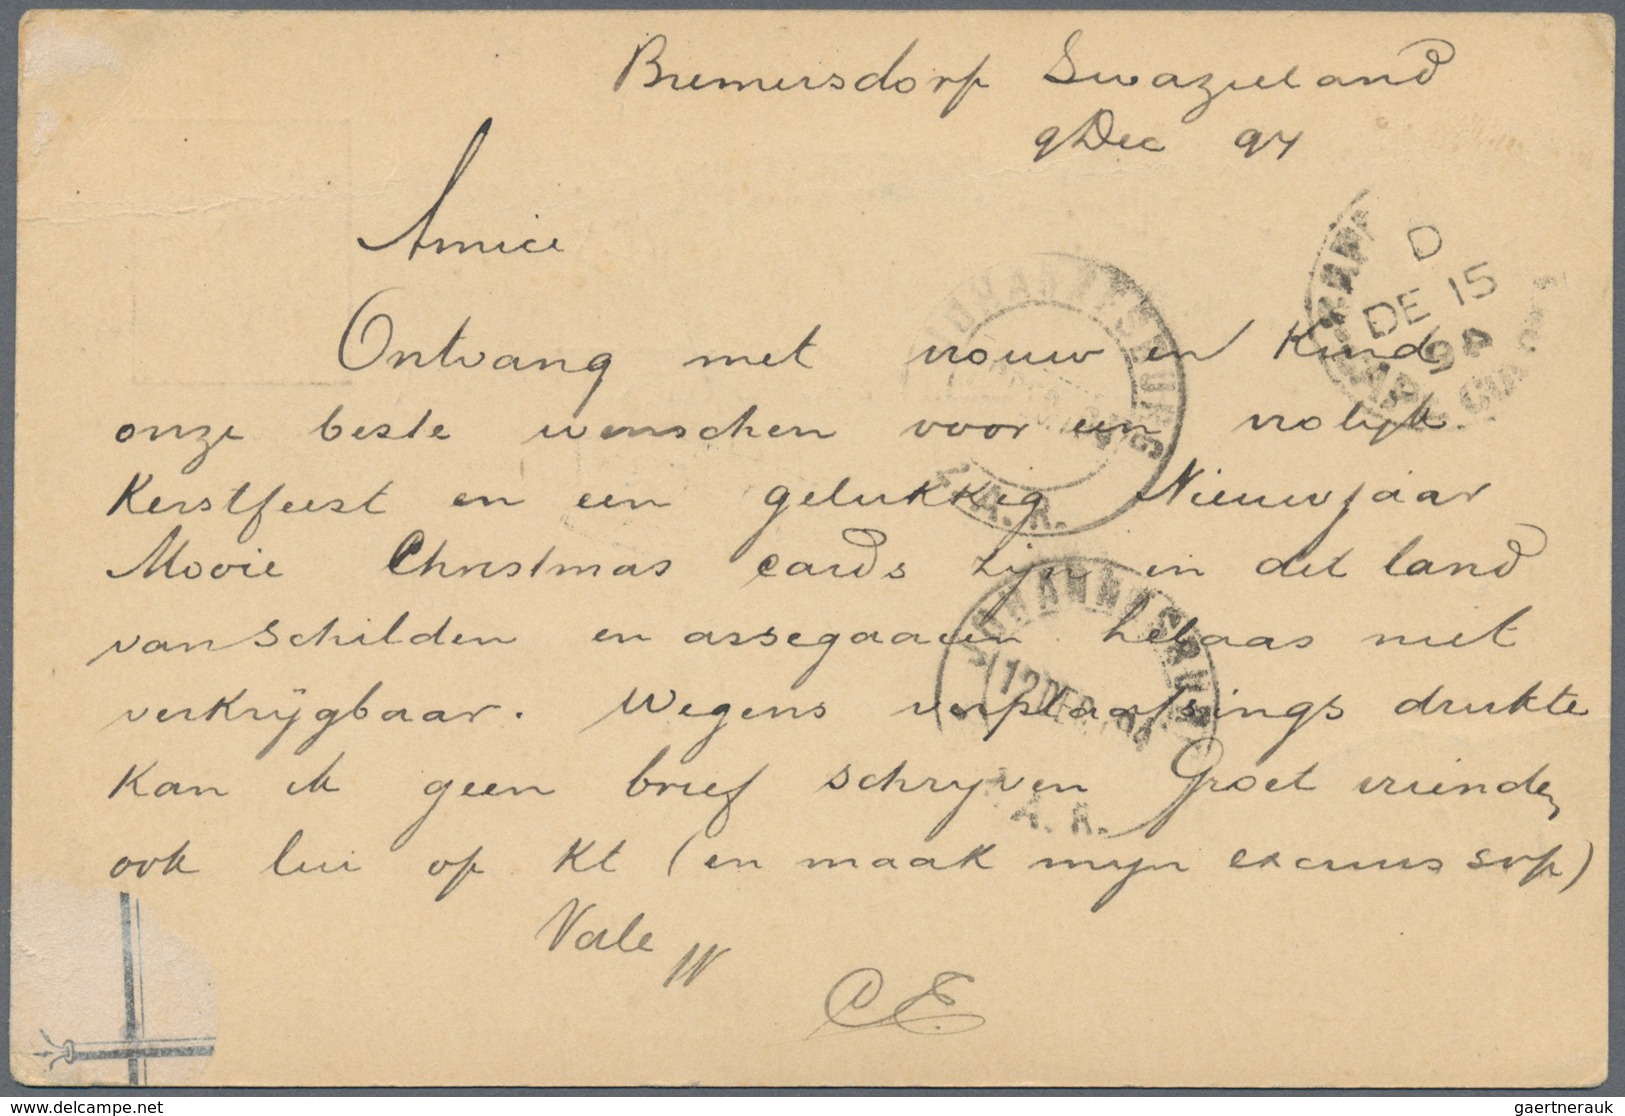 Bremersdorp Swazieland
9 Dec 94
Amice
Ontvang met vrouw en Kind
onze beste wenschen voor een vrolijk
Kerstfeest en een gelukkig Nieuwjaar
Mooie Christmas cards zijn in dit land
van schilden en assegaaien helaas niet
verkrijgbaar. Wegens verplaatsings drukte
kan ik geen brief schrijven Groet vrienden
ook lui op Kt (en maak mijn excuus svp)
Vale
CE
JOHANNESBURG
Z.A.R.
JOHANNESBURG
12 DEC 94
Z.A.R.
D
DE 15
94
delcampe.net
gaertnerauk